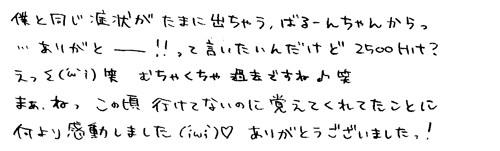 僕と同じ症状がたまに出ちゃう、ばるーんちゃんからっ
…ありがと──!!って言いたいんだけど 2500Hit?
えっΣ(iωi)笑 むちゃくちゃ過去ですね♪笑
まぁ、ねっ この頃 行けてないのに覚えてくれてたことに
何より感動しました(iωi)♡ ありがとうございましたっ!